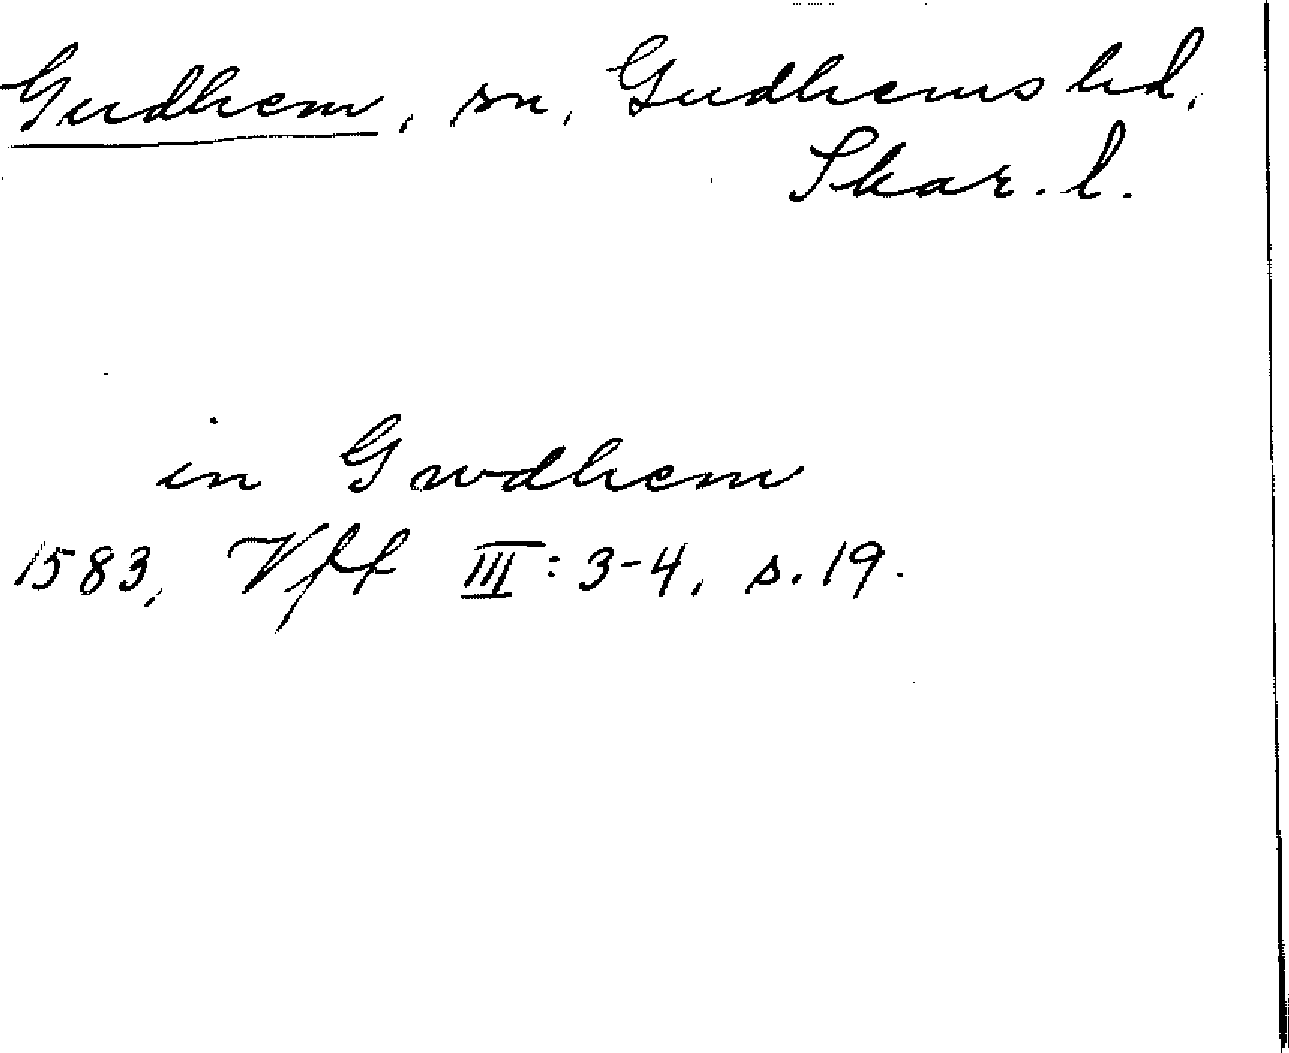 Gudhem, sn, Gudhems hd,
Skar. l.
in Gwdhem
1583, Vff III: 3-4, s. 19.